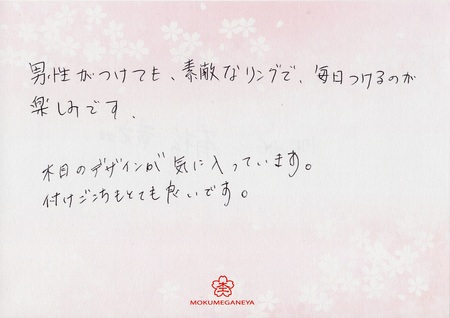 男性がつけても、素敵なリングで、毎日つけるのが
楽しみです。
木目のデザインが気に入っています。
付けごこちもとても良いです。
MOKUMEGANEYA